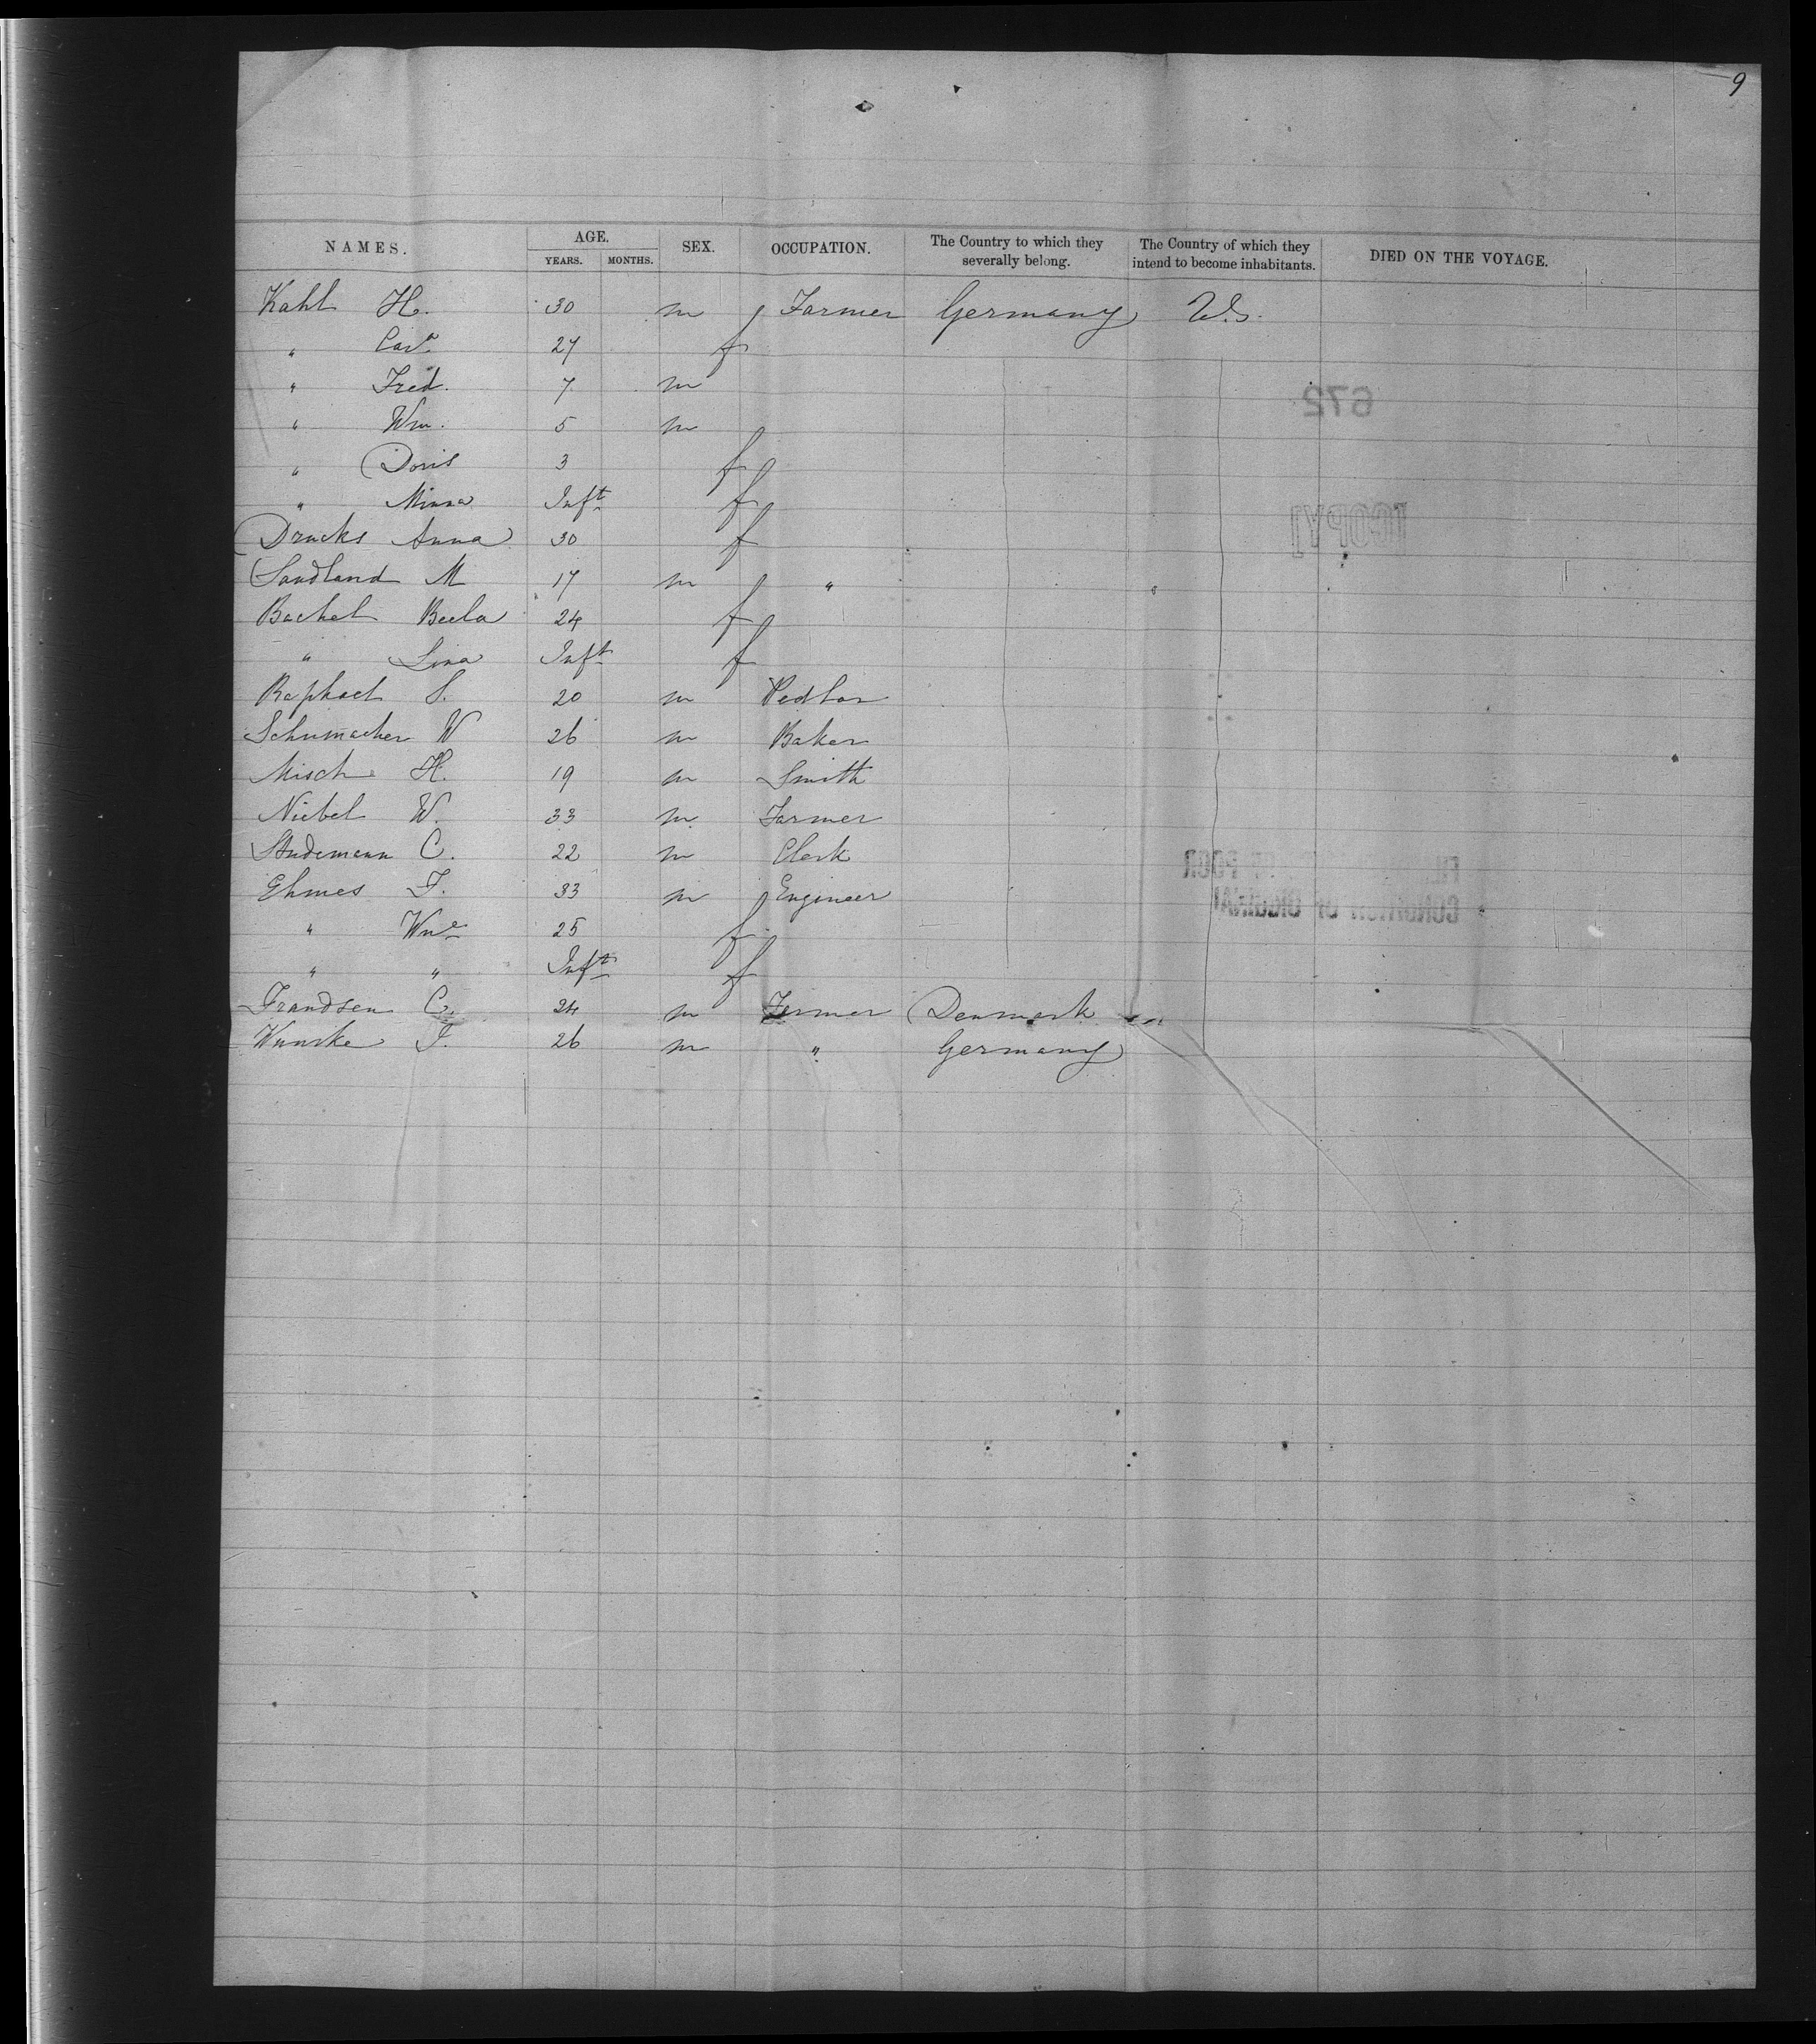 9
NAMES. AGE. YEARS. MONTHS. SEX. OCCUPATION. The Country to which they severally belong. The Country of which they intend to become inhabitants. DIED ON THE VOYAGE.
Kahl H. 30 m Farmer Germany U.S.
" Cara 27 f
" Fred. 7 m
" Wm. 5 m
" Doris 3 f
" Minna Inft f
Drucks Anna 30 f
Sandland M 17 m " "
Bachel Beela 24 f
" Lina Inft f
Raphael S. 20 m Pedlar
Schumacher W 26 m Baker
Misch H. 19 m Smith
Niebel W. 33 m Farmer
Studemann C. 22 m Clerk
Ehmes F. 33 m Engineer
" Wne 25 f
" " Inft f
Frandsen C. 24 m Farmer Denmark "
Wunske J. 26 m " Germany
672
[COPY]
CONDITION OF ORIGINAL